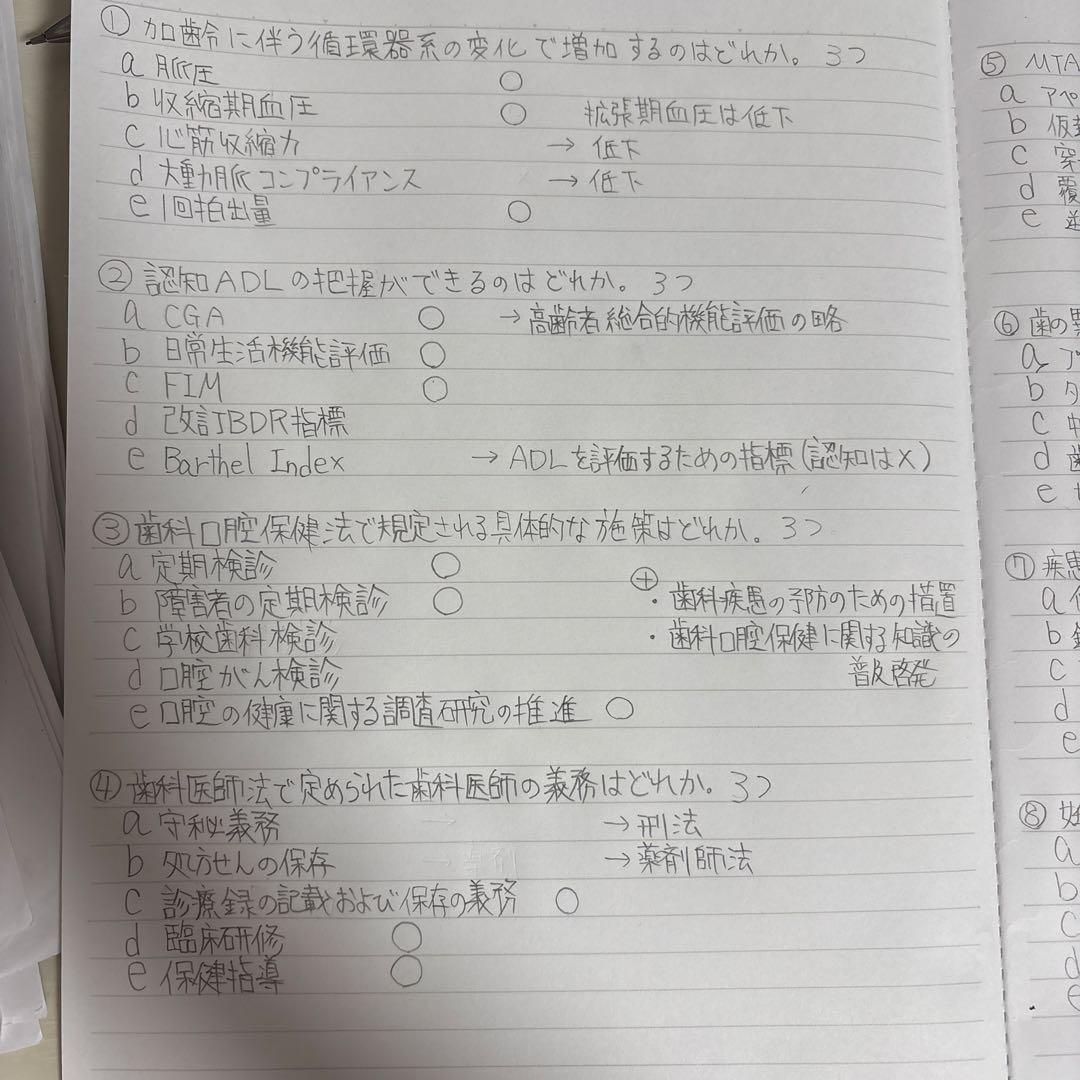 ① 加齢に伴う循環器系の変化で増加するのはどれか。3つ
a 脈圧 ○
b 収縮期血圧 ○ 拡張期血圧は低下
c 心筋収縮力 → 低下
d 大動脈コンプライアンス → 低下
e 1回拍出量 ○
② 認知ADLの把握ができるのはどれか。3つ
a CGA ○ → 高齢者総合的機能評価の略
b 日常生活機能評価 ○
c FIM ○
d 改訂JBDR指標
e Barthel Index → ADLを評価するための指標(認知は×)
③ 歯科口腔保健法で規定される具体的な施策はどれか。3つ
a 定期検診 ○
b 障害者の定期検診 ○
c 学校歯科検診
d 口腔がん検診
e 口腔の健康に関する調査研究の推進 ○
⊕
・歯科疾患の予防のための措置
・歯科口腔保健に関する知識の
普及啓発
④ 歯科医師法で定められた歯科医師の義務はどれか。3つ
a 守秘義務 → 刑法
b 処方せんの保存 → 薬剤師法
c 診療録の記載および保存の義務 ○
d 臨床研修 ○
e 保健指導 ○
⑤ MTA
a アペ
b 仮
c 穿
d 覆
e 逆
⑥ 歯の
a
b
c
d
e
⑦ 疾患
a
b
c
d
e
⑧ 妊
a
b
c
d
e